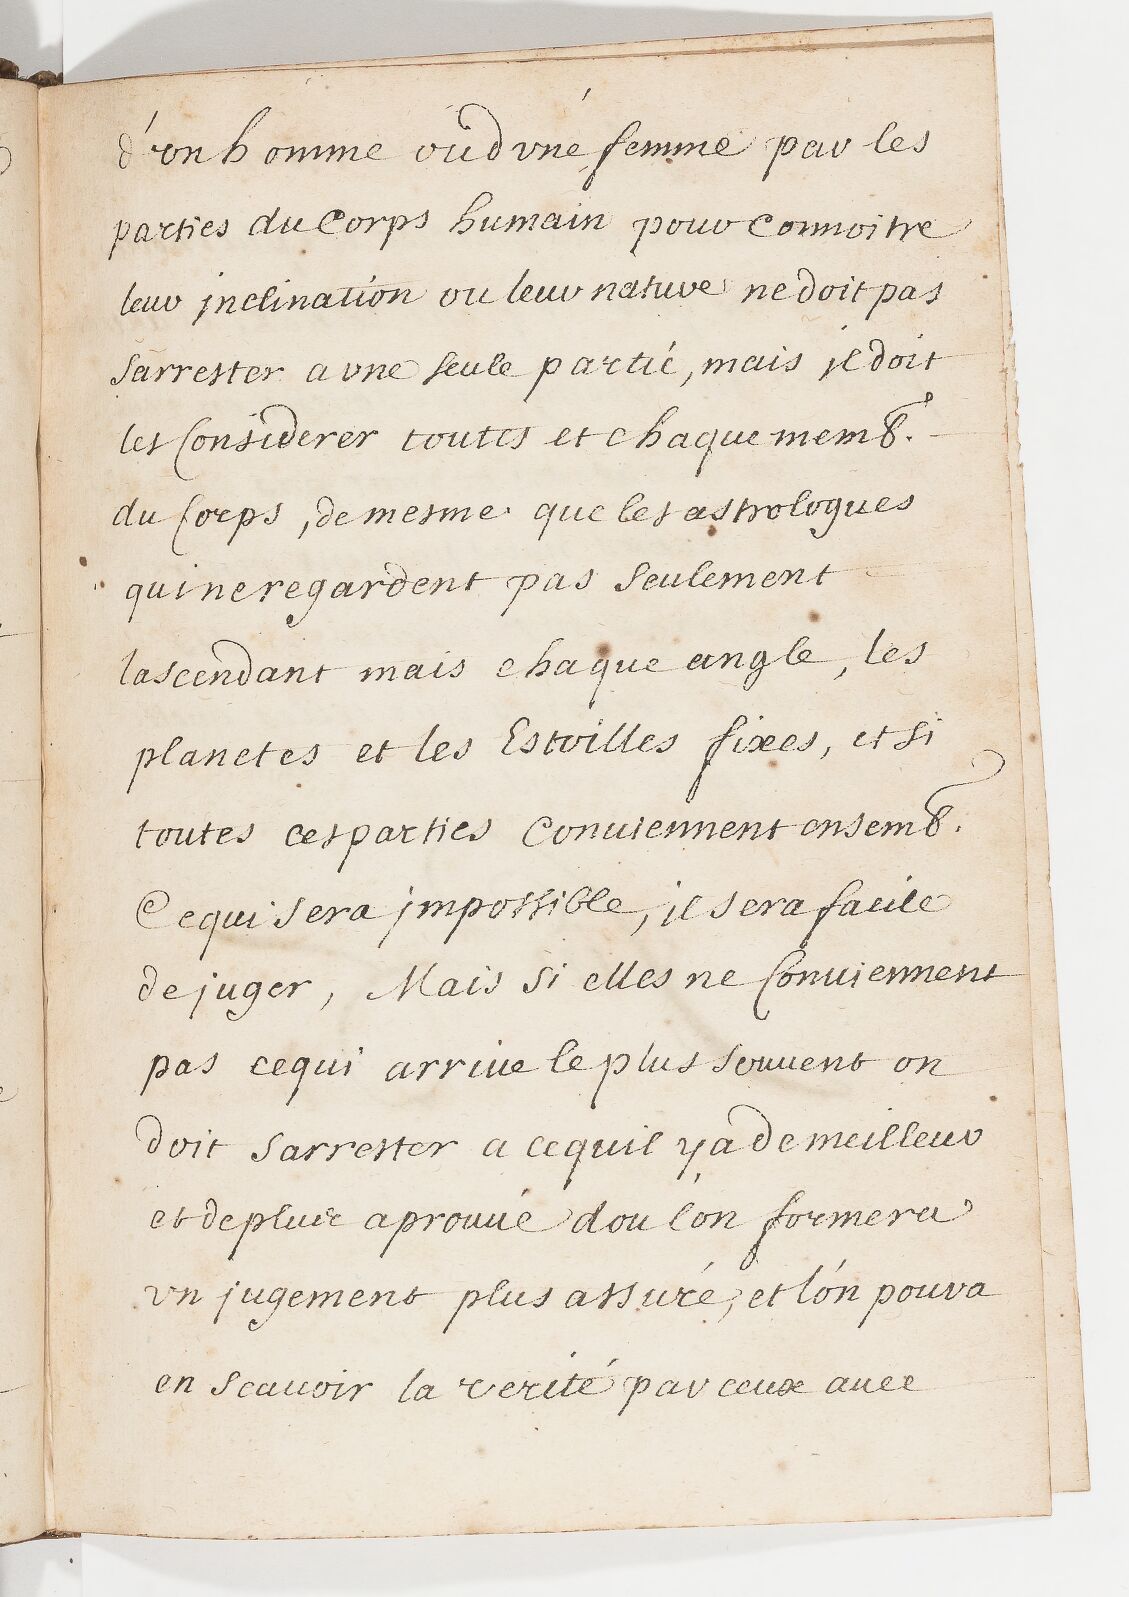 d'vn homme ou d vne femme par les
parties du Corps humain pour Connoitre
leur jnclination ou leur nature ne doit pas
sarrester a vne seule partie, mais jl doit
les Considerer toutes et chaque memb.
du Corps, de mesme que les astrologues
qui ne regardent pas seulement
lascendant mais chaque angle, les
planetes et les Estoilles fixes, et si
toutes ces parties Conuiennent ensemb.
Ce qui sera jmpossible, jl sera facile
de juger, Mais si elles ne Conuiennent
pas ce qui arriue le plus souuent on
doit sarrester a ce quil y a de meilleur
et de plus aprouué dou lón formera
vn jugement plus assuré, et lón poura
en scauoir la verité par ceux auec